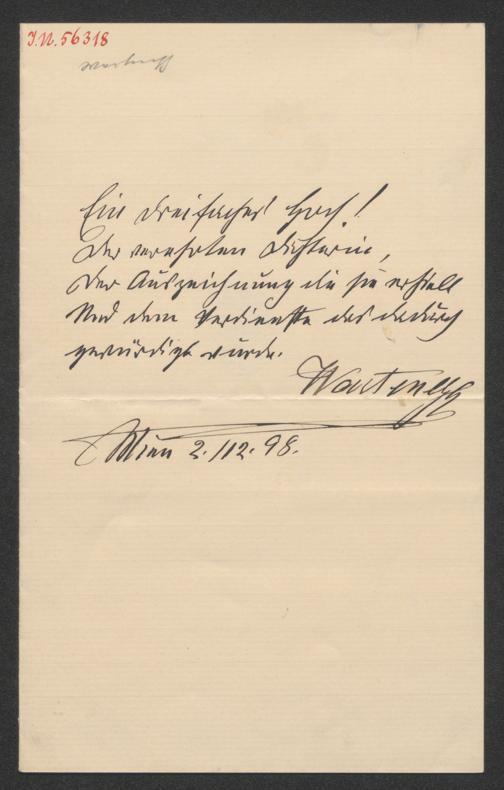 J.N. 56318
Ein dreifaches Hoch!
Der verehrten Dichterin,
Der Auszeichnung die sie erhielt
Und dem Verdienste das dadurch
gewürdigt wurde.
Wien 2./12. 98.